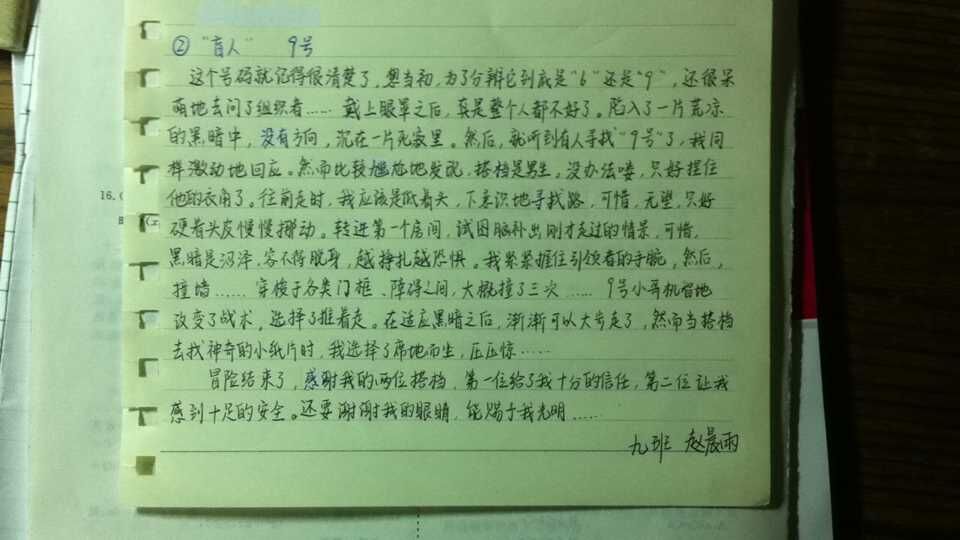 ② “盲人”  9号
这个号码就记得很清楚了，想当初，为了分辨它到底是“6”还是“9”，还很呆
萌地去问了组织者……戴上眼罩之后，真是整个人都不好了。陷入了一片荒凉
的黑暗中，没有方向，沉在一片死寂里。然后，就听到有人寻找“9号”了，我同
样激动地回应。然而比较尴尬地发现，搭档是男生。没办法喽，只好捏住
他的衣角了。往前走时，我应该是低着头，下意识地寻找路，可惜，无望，只好
硬着头皮慢慢挪动。转进第一个房间，试图脑补出刚才走过的情景，可惜，
黑暗是沼泽，容不得脱身，越挣扎越恐惧。我紧紧握住引领者的手腕，然后，
撞墙……穿梭于各类门框、障碍之间，大概撞了三次……9号小哥机智地
改变了战术，选择了推着走。在适应黑暗之后，渐渐可以大步走了，然而当搭档
去找神奇的小纸片时，我选择了席地而坐，压压惊……
冒险结束了，感谢我的两位搭档，第一位给了我十分的信任，第二位让我
感到十足的安全。还要谢谢我的眼睛，能赐予我光明……
九班 赵晨雨
16.